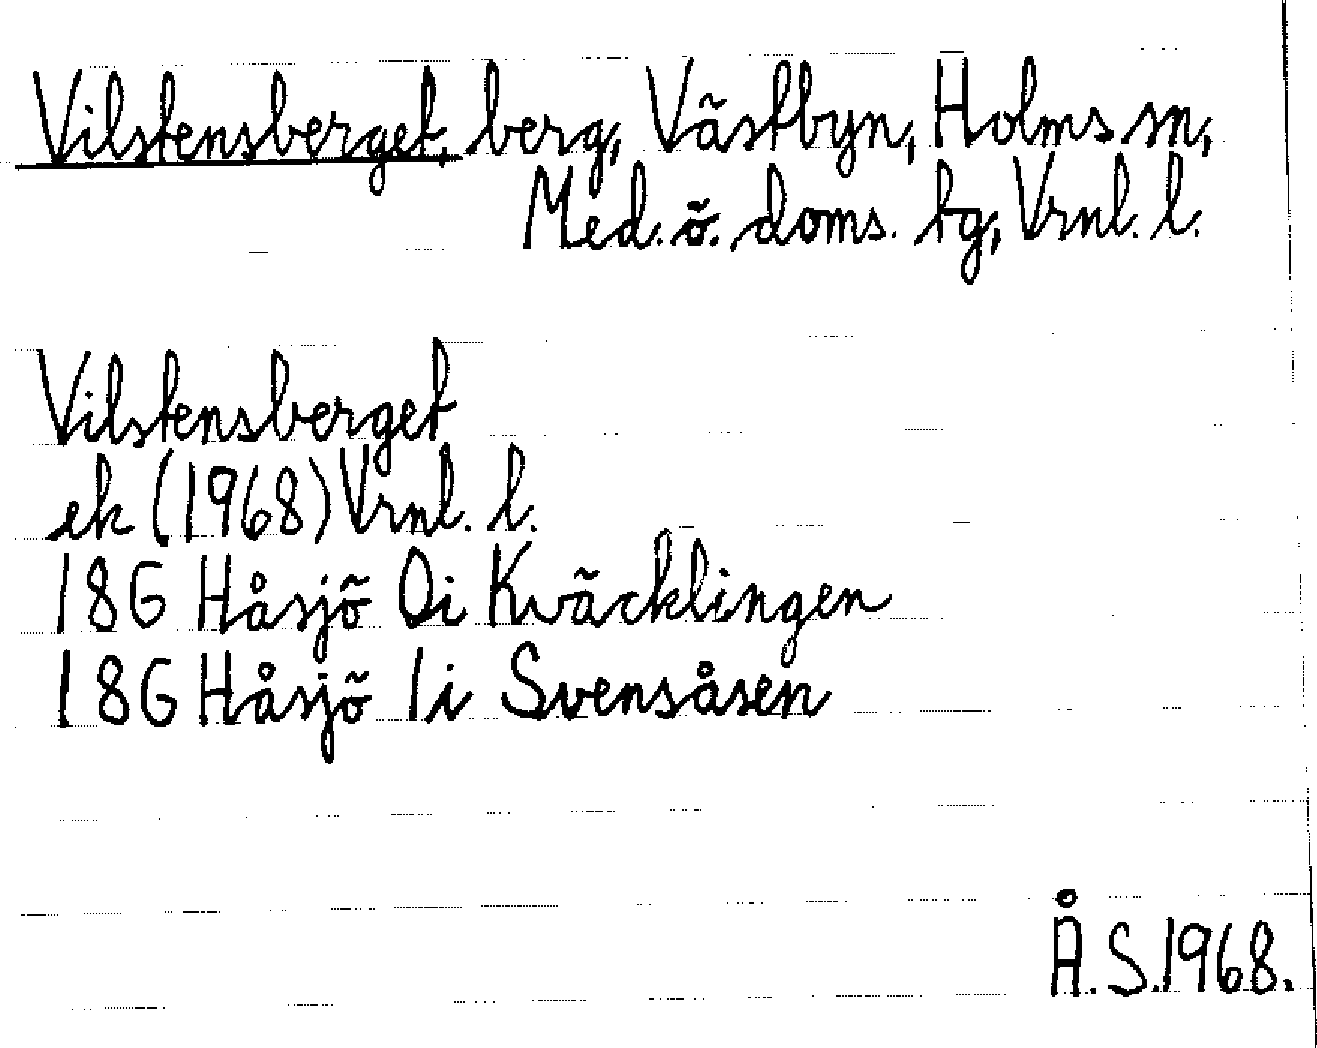 Vilstensberget, berg, Västbyn, Holms sn,
Med. ö. doms. tg, Vrnl. l.
Vilstensberget
ek (1968) Vrnl. l.
18G Håsjö 0i Kväcklingen
18G Håsjö 1i Svensåsen
Å.S.1968.